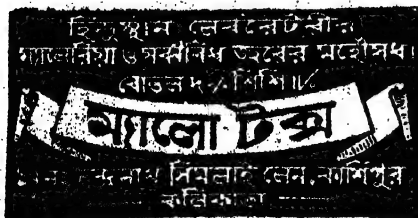 হিন্দুস্থান লেবরেটরীর
ম্যালেরিয়া ও সর্ব্ববিধ জ্বরের মহৌষধ।
বোতল শিশি ॥৵
ম্যালোটক্স
সিমলাই লেন, কাশিপুর
কলিকাতা